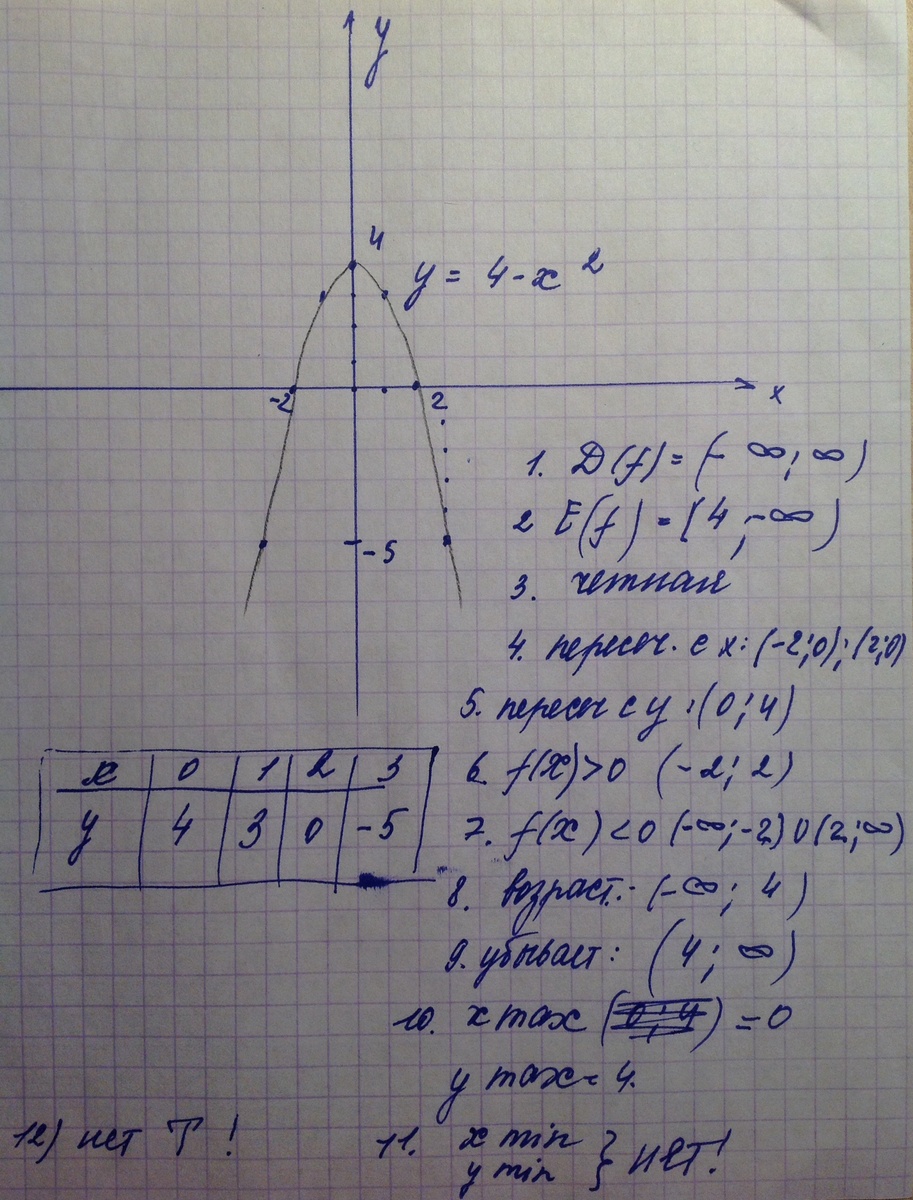 y
4
y = 4 - x²
-2
2
x
-5
1. D(f) = (- ∞; ∞)
2 E(f) = [4; -∞)
3. четная
4. пересеч. с x: (-2;0); (2;0)
5. пересеч с y: (0; 4)
x 0 1 2 3
y 4 3 0 -5
6. f(x) > 0 (-2; 2)
7. f(x) < 0 (-∞; -2) U (2; ∞)
8. возраст.: (-∞; 4)
9. убывает: (4; ∞)
10. x max (0; 4) = 0
y max = 4.
11. x min
y min } нет!
12) нет T !